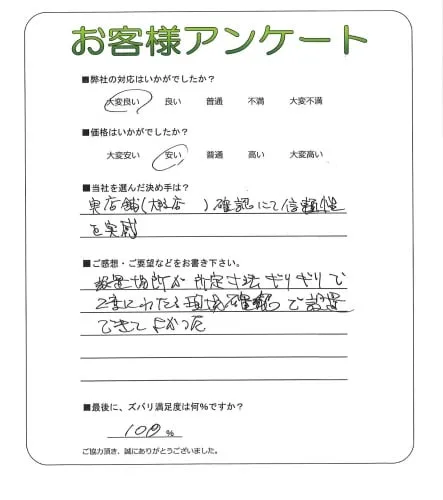 お客様アンケート
■弊社の対応はいかがでしたか？
大変良い 良い 普通 不満 大変不満
■価格はいかがでしたか？
大変安い 安い 普通 高い 大変高い
■当社を選んだ決め手は？
実店舗( 店 )確認にて信頼性
を実感
■ご感想・ご要望などをお書き下さい。
設置場所が所定寸法ギリギリで
2度にわたる現場確認で設置
できてよかった
■最後に、ズバリ満足度は何%ですか？
100 %
ご協力頂き、誠にありがとうございました。